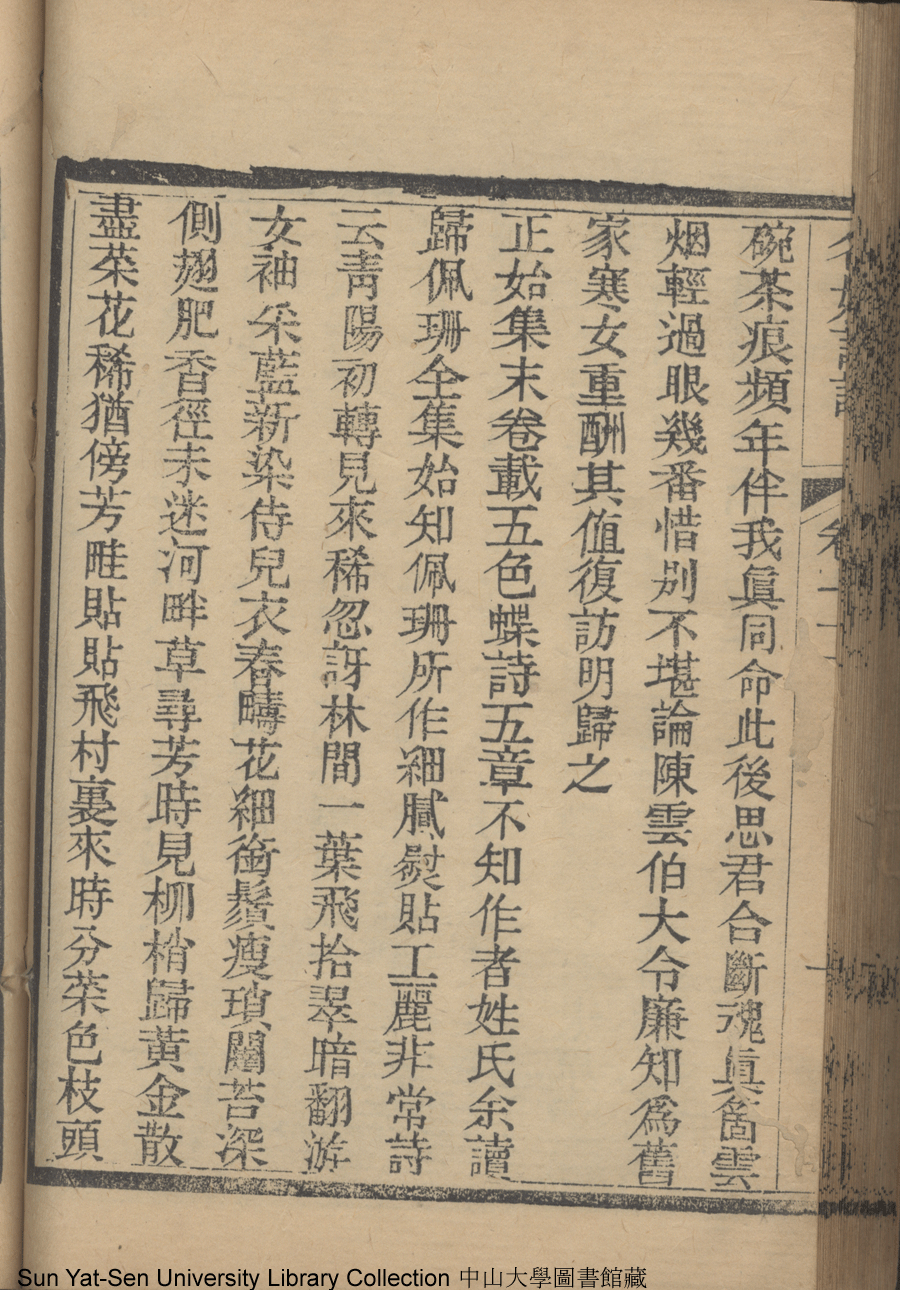 碗茶痕頻年伴我眞同命此後思君合斷魂眞箇雲
烟輕過眼幾番惜别不堪論陳雲伯大令廉知爲舊
家寒女重酬其值復訪明歸之
正始集末卷載五色蝶詩五章不知作者姓氏余讀
歸佩珊全集始知佩珊所作細膩熨貼工麗非常詩
云青陽初轉見來稀忽訝林間一葉飛拾翠暗翻游
女袖采藍新染侍兒衣春疇花細銜鬚瘦瑣闥苔深
側翅肥香徑未迷河畔草尋芳時見柳梢歸黃金散
盡菜花稀猶傍芳畦貼貼飛村裏來時分菜色枝頭
Sun Yat-Sen University Library Collection 中山大學圖書館藏